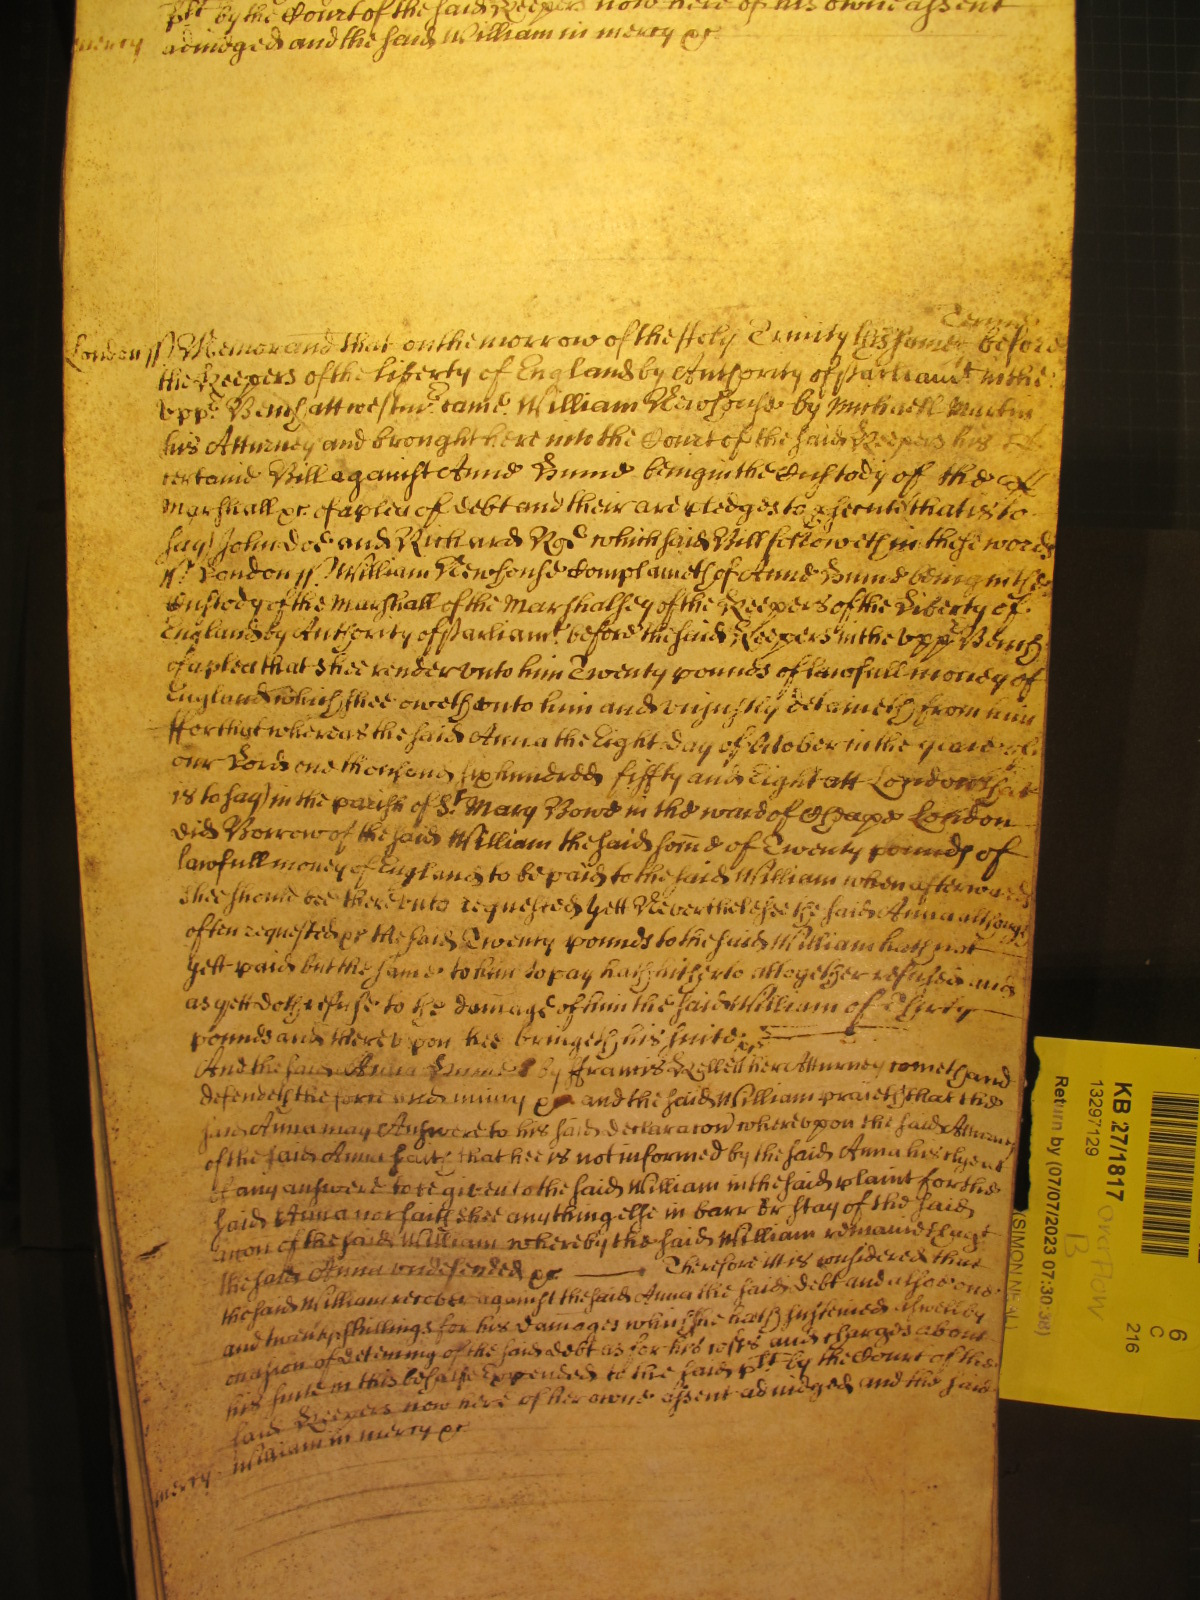 plt by the Court of the said Keepers now here of his owne assent
mercy adiudged and the said William in mercy &c
Terme
London ss Memorand that on the morrow of the Holy Trinity this same before
the Keepers of the liberty of England by Authority of Parliamt in the
vppr Bench att westmr came William Newhouse by Michaell Martin
his Atturney and brought here into the Court of the said Keepers his
certaine Bill against Anne Hume being in the Custody of the
Marshall &c of a plea of debt and their are pledges to psecute that is to
say John Doe and Richard Roe which said Bill followeth in these words
ss London ss William Newhouse Complaineth of Anne Hume being in the
Custody of the Marshall of the Marshalsey of the Keepers of the Liberty of
England by Authority of Parliamt before the said Keepers in the vppr Bench
of a plea that shee render vnto him Twenty pounds of lawfull money of
England which shee oweth vnto him and vniustly detaineth from him
ffor that whereas the said Anna the Eight day of October in the yeare of
our Lord one thousand six hundred fiffty and Eight att London that
is to say in the parish of St Mary Bowe in the ward of Cheape London
did Borrow of the said William the said some of Twenty pounds of
lawfull money of England to be paid to the said William when afterwards
shee should bee there vnto requested yett Neverthelesse the said Anna although
often requested &c the said Twenty pounds to the said William hath not
yett paid but the same to him to pay hath hitherto altogether refused and
as yett doth refuse to the damage of him the said William of Thirty
pounds and therevpon hee bringeth his suite &c
And the said Anna Hume by ffrancis Kellett her Atturney cometh and
defendeth the force and iniury &c and the said William praieth that the
said Anna may Answere to his said declaracon wherevpon the said Atturney
of the said Anna saith that hee is not informed by the said Anna his clyent
of any answere to be given to the said William in the said plaint for the
said Anna nor saith shee any thing else in barr or stay of the said
accon of the said William whereby the said William remaineth agt
the said Anna vndefended &c Therefore itt is considered that
the said William recover against the said Anna the said debt and alsoe one
and twenty shillings for his damages which he hath susteined aswell by
occasion of deteining of the said debt as for his costs and charges about
his suite in this behalfe Expended to the said plt by the Court of the
said Keepers now here of her owne assent adiudged and the said
mercy William in mercy &c
KB 27/1817 overflow
13297129
B
Return by (07/07/2023 07:30:38)
(SIMON NEAL)
6
C
216